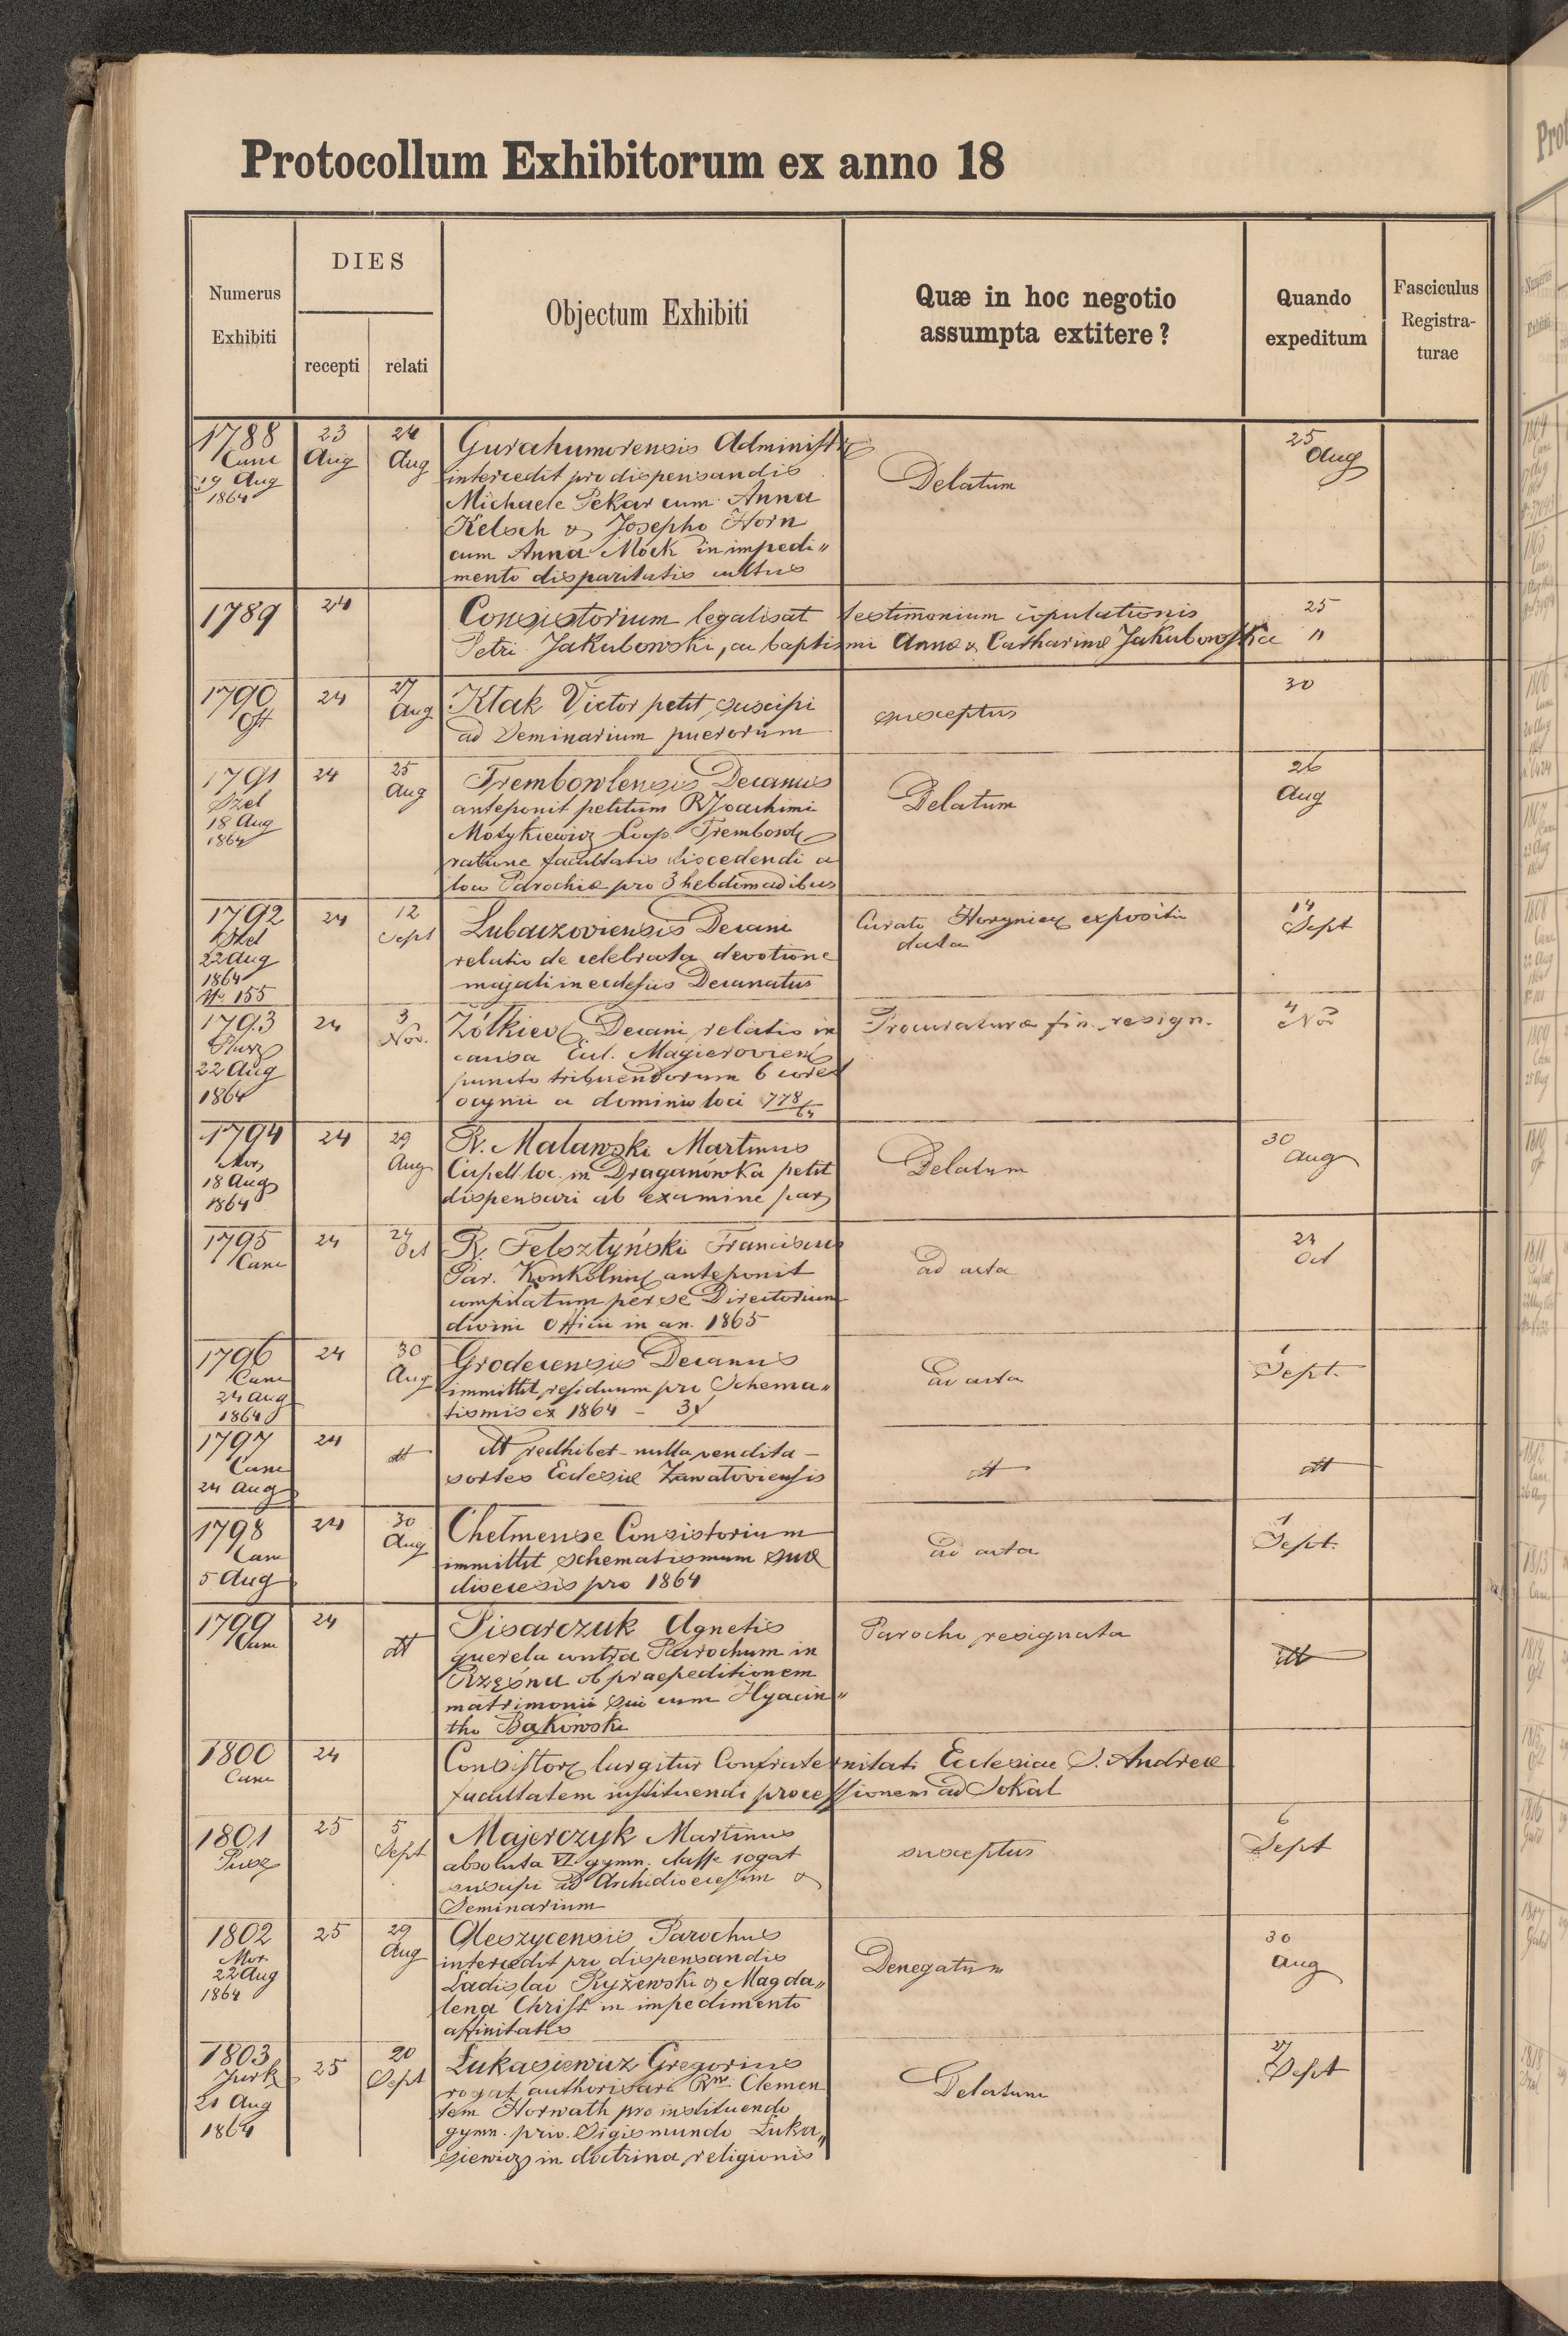 Protocollum Exhibitorum ex anno 18
Numerus Exhibiti
DIES
recepti
relati
Objectum Exhibiti
Quæ in hoc negotio
assumpta extitere?
Quando
expeditum
Fasciculus
Registra-
turae
1788
Canc
19 Aug
1864
23
Aug
24
Aug
Gurahumorensis Administr
intercedit pro dispensandis
Michaele Pekar cum Anna
Kelsch & Josepho Horn
cum Anna Mock in impedi„
mento disparitatis cultus
Delatum
25
Aug
1789
24
Consistorium legalisat testimonium copulationis
Petri Jakubowski, ac baptismi Annæ & Catharinæ Jakubowskie
25
"
1790
Off
24
27
Aug
Kłak Victor petit suscipi
ad Seminarium puerorum
susceptus
30
1791
Szel
18 Aug
1864
24
25
Aug
Trembowlensis Decanus
anteponit petitum R Joachimi
Motykiewicz Coop. Trembowl
ratione facultatis discedendi a
loco Parochiæ pro 3 hebdomadibus
Delatum
26
Aug
1792
Szel
22 Aug
1864
No 155
24
12
Sept
Lubaczoviensis Decani
relatio de celebrata devotione
majali in ecclesiis Decanatus
Curato Horyniec expositio
data
14
Sept
1793
22 Aug
1864
24
3
Nov.
Żółkiev Decani relatio in
causa Ecl. Magierovien
puncto tribuendorum 6 coret
ocynii a dominio loci 778/64
Procuraturæ fin. resign.
4
Nov
1794
Mor
18 Aug
1864
24
29
Aug
R. Malawski Martinus
Capell loc. in Draganówka petit
dispensari ab examine par
Delatum
30
Aug
1795
Canc
24
24
Oct
R. Felsztyński Franciscus
Par. Konkolnic anteponit
compilatum per se Directorium
divini Officii in an. 1865
ad acta
24
Oct
1796
Canc
24 Aug
1864
24
30
Aug
Grodecensis Decanus
immittit residuum pro Schema„
tismis ex 1864 - 3f
ad acta
1
Sept.
1797
Canc
24 Aug
24
dtt
dtt redhibet - nulla vendita -
sortes Ecclesiæ Zawatoviensis
dtt
dtt
1798
Canc
5 Aug
24
30
Aug
Chełmense Consistorium
immittit schematismum suæ
dioecesis pro 1864
ad acta
1
Sept.
1799
Canc
24
dtt
Pisarczuk Agnetis
querela contra Parochum in
Rzęsna ob praepeditionem
matrimonii sui cum Hyacin„
tho Bąkowski
Parocho resignata
dtt
1800
Canc
24
Consistor largitur Confraternitati Ecclesiae S. Andreæ
facultatem instituendi processionem ad Sokal
1801
25
5
Sept
Majerczyk Martinus
absoluta VI gymn. classe rogat
suscipi ad Archidioecesim &
Seminarium
susceptus
6
Sept
1802
Mor
22 Aug
1864
25
29
Aug
Oleszycensis Parochus
intercedit pro dispensandis
Ladislao Ryżewski & Magda„
lena Christ in impedimento
affinitatis
Denegatum
30
Aug
1803
Jurk
21 Aug
1864
25
20
Sept
Łukasiewicz Gregorius
rogat authorisari Rm Clemen
tem Horwath pro instituendo
gymn. priv. Sigismundo Łuka„
siewicz in doctrina religionis
Delatum
27
Sept